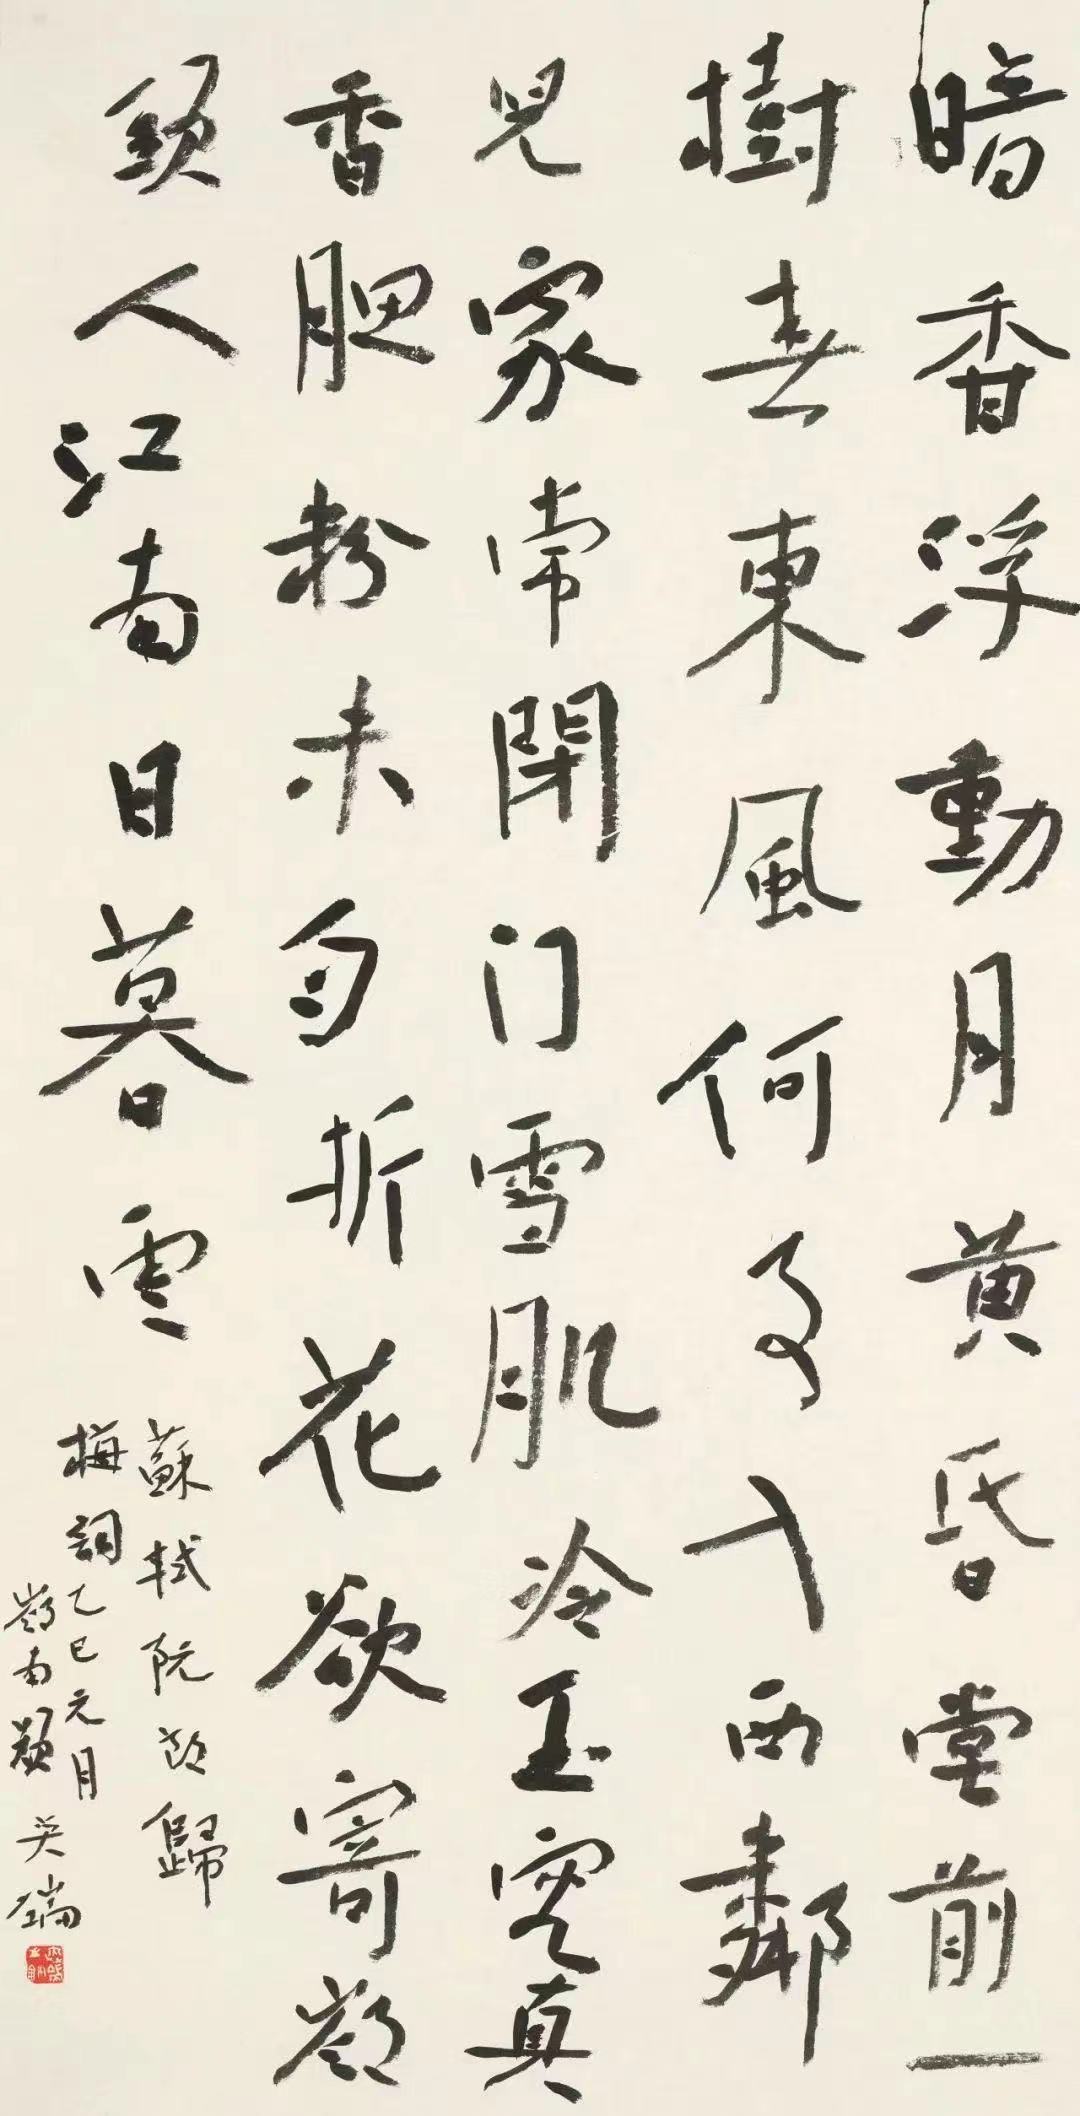 暗香浮動月黄昏堂前一
樹春東風何事入西鄰
兒家常閉门雪肌冷玉容真
香腮粉未勻折花欲寄嶺
頭人江南日暮雲
蘇軾阮郎歸
梅詞乙巳元月
嶺南